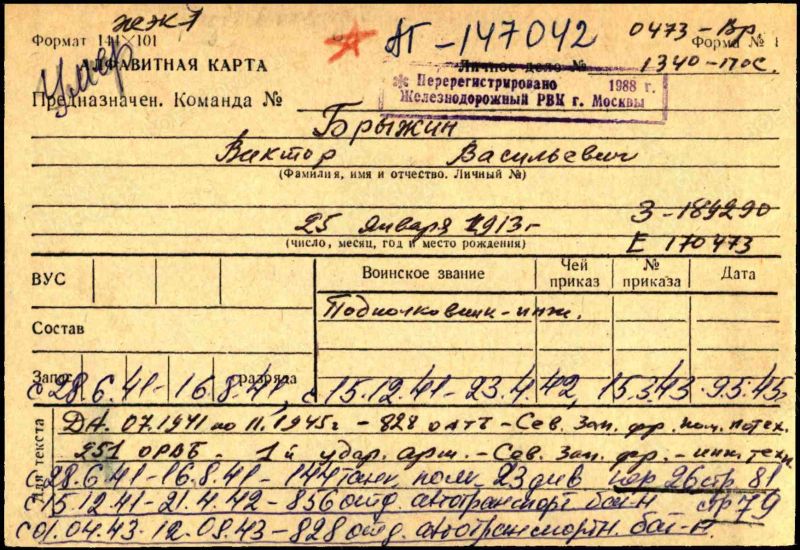 жэк1
Формат 144×101
АП-147042
0473-Вр.
Форма №
умер
АЛФАВИТНАЯ КАРТА
Личное дело №
1340-пос.
Предназначен. Команда №
Перерегистрировано 1988 г.
Железнодорожный РВК г. Москвы
Брыжин
Виктор Васильевич
(Фамилия, имя и отчество. Личный №)
25 января 1913г
З-189290
(число, месяц, год и место рождения)
Е 170473
ВУС
Воинское звание
Чей приказ
№ приказа
Дата
Подполковник-инж.
Состав
Запас разряда
с 28.6.41-16.8.41, с 15.12.41-23.4.42, 15.3.43-9.5.45,
Для текста
ДА. 07.1941 по 11.1945г - 828 оатб - Сев. Зап. фр. пом. по тех.
251 ОРВБ - 1й удар. арм. - Сев. Зап. фр. - инж. техн
с 28.6.41-16.8.41-144 танк. полк 23 див пер 26 стр 81
с 15.12.41-21.4.42-856 отд. автотранспорт бат-н стр 79
с 01.04.43-12.08.43-828 отд. автотранспортн. бат-н.